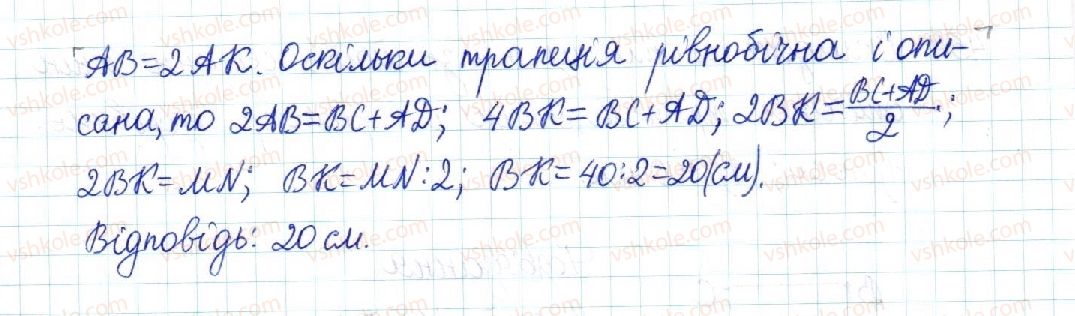 AB=2AK. Оскільки трапеція рівнобічна і опи-
сана, то 2AB=BC+AD; 4BK=BC+AD; 2BK=\frac{BC+AD}{2};
2BK=MN; BK=MN:2; BK=40:2=20(см).
Відповідь: 20 см.